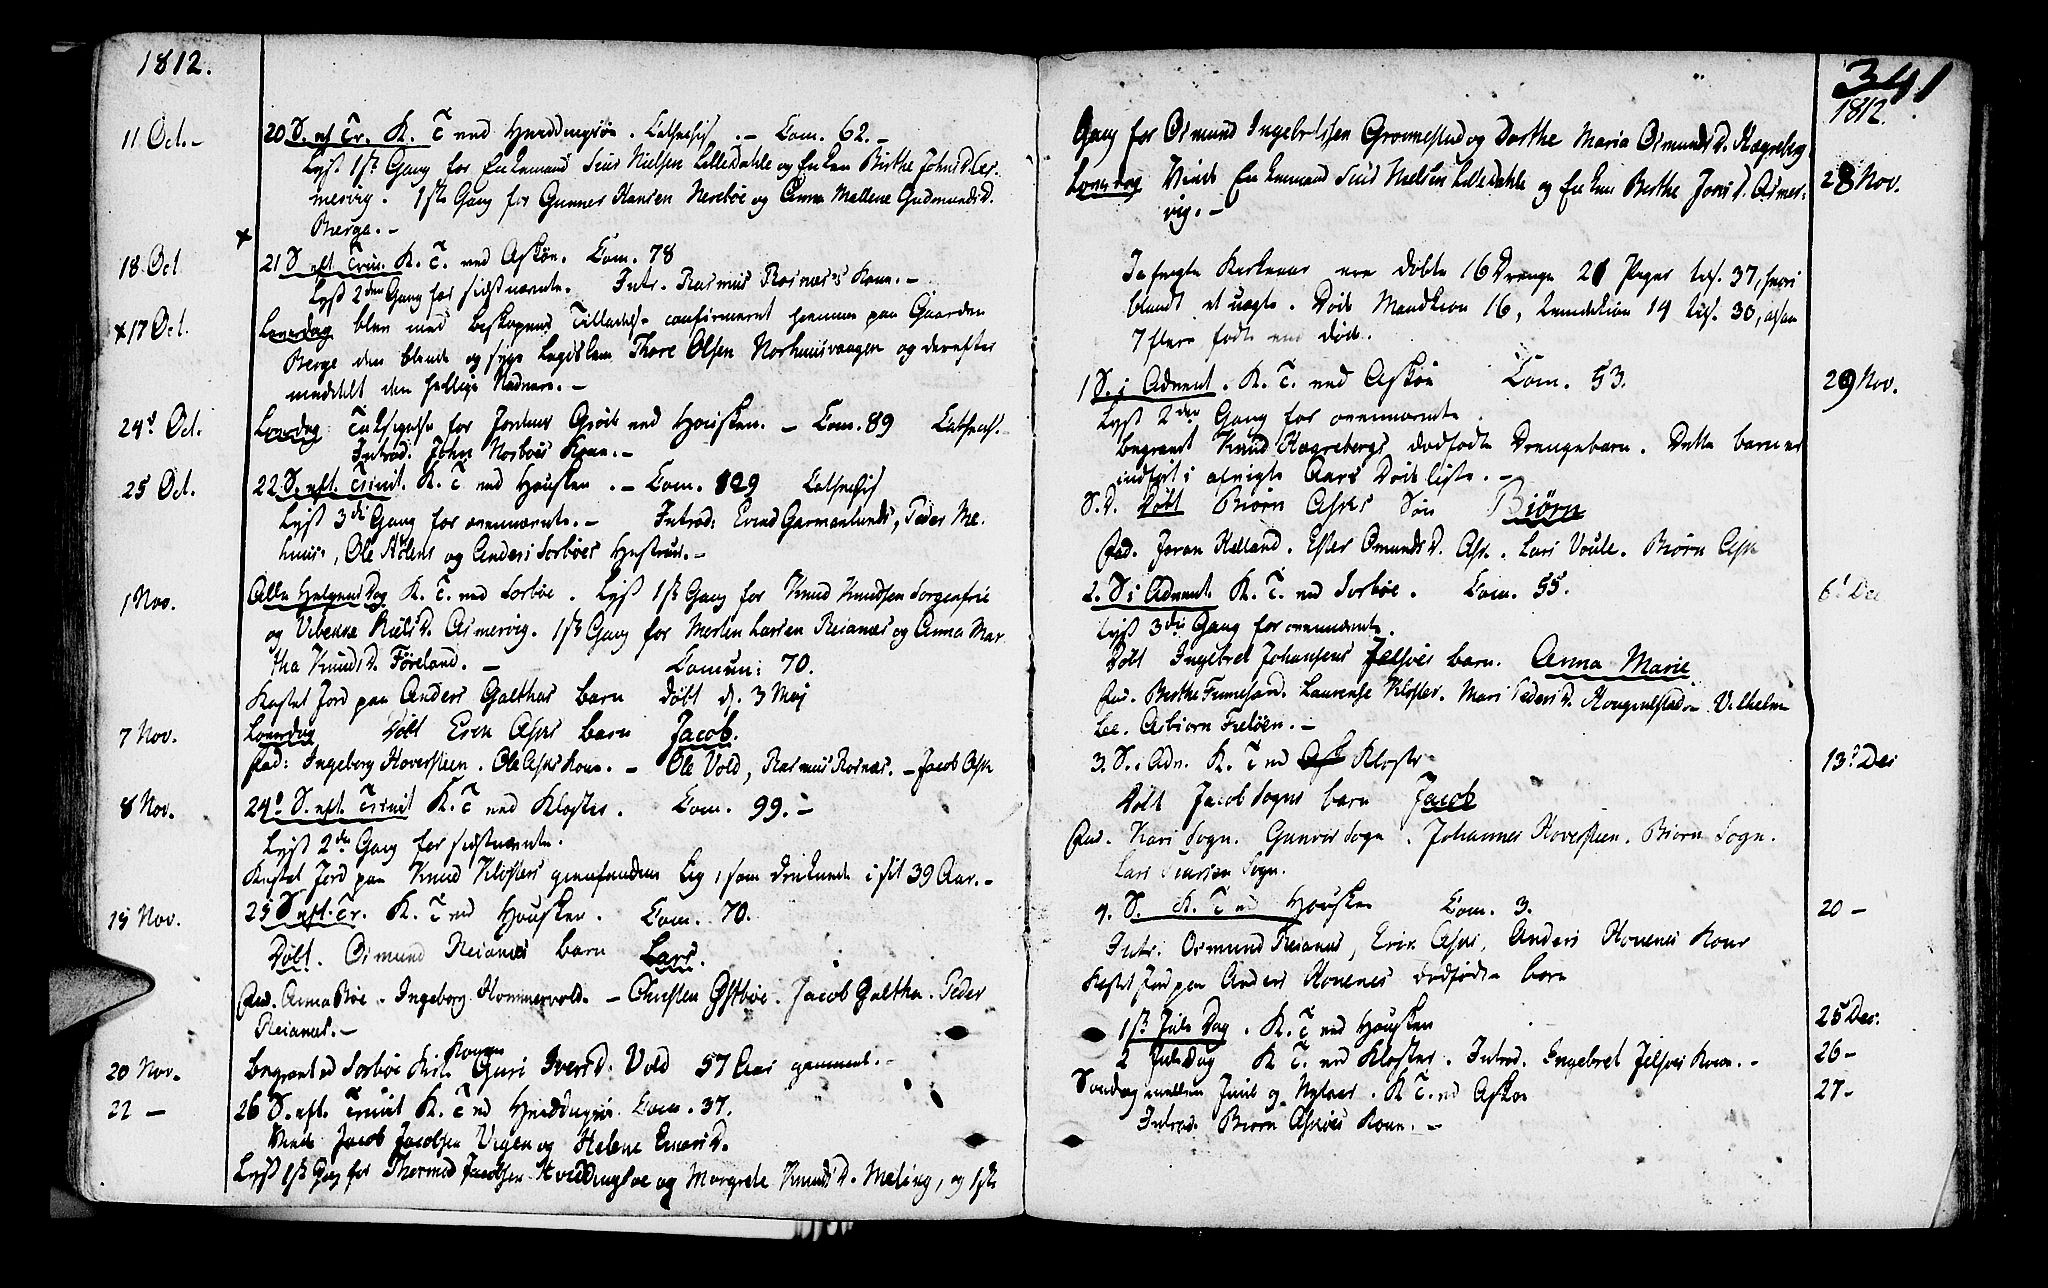 1812.
11 Oct. -
20 S. eft Tr. K. T. ved Hviddingsøe. Cathechis. - Com. 62. -
Lyst 1ste Gang for Enkemand Siur Nielsen Lilledahle og Enken Birthe Johns D. As-
mervig. 1ste Gang for Gunner Hansen Nerebøe og Anna Mallene Gudmunds D.
Berge. -
18 Oct
21 S. eft. Trin. K. T. ved Askøe. Com. 78
Lyst 2den Gang for sidstnævnte. Intr. Rasmus Rosnæs's Kone. -
+ 17 Oct.
Løverdag blev med Biskopens Tilladelse confirmeret hjemme paa Gaarden
Berge den blinde og syge Thore Olsen Norhuusvaagen og derefter
meddelt den hellige Nadvere. -
24d Oct.
Løverdag Taksigelse for Jordens Grøde ved Housken. - Com. 89 Cathech. -
Introd. John Norbøes Kone. -
25 Oct.
22 S. eft. Trinit. K. T. ved Housken. - Com. 129 Cathechis
Lyst 3die Gang for ovennævnte. - Introd: Evind Garmanlunds, Peder Me-
huus, Ole Aalens og Anders Sorbøes Hustrue. -
1 Nov.
Alle Helgens Dag K. T. ved Sorbøe. Lyst 1ste Gang for Knud Knudsen Sorgenfrie
og Vibekka Niels D. Asmervig. 1ste Gang for Morten Larsen Reianæs og Anna Mar-
tha Knuds D. Føreland. - Commun: 70.
Kastet Jord paa Anders Galthes barn døbt d. 3 Maj
7 Nov.
Løverdag Døbt Even Askes barn Jacob.
Fad: Ingeborg Hoversteen. Ole Askes Kone. - Ole Vold, Rasmus Rosnæs. - Jacob Ask
8 Nov.
24d S. eft. Trinit K. T. ved Kloster. Com. 99. -
Lyst 2den Gang for sidstnævnte.
Kastet Jord paa Knud Klosters gjenfundne Lig, som druknede i sit 39 Aar. -
15 Nov.
25 S. eft. Tr. K. T. ved Housken. Com. 70.
Døbt. Osmund Reianæs barn Lars.
Fad. Anna Bøe. Ingeborg Hommervold. - Christen Østbøe. Jacob Galtha. Peder
Reianæs. -
20 Nov.
Begravet ved Sorbøe Kirke Konen Guri Ivers D. Vold 57 Aar gammel. -
22 -
26 S. eft. Trinit K. T. ved Hviddingsøe. Com. 37.
Viede Jacob Jacobsen Vigen og Helene Einars D.
Lyst 1ste Gang for Thormod Jacobsen Hviddingsøe og Margrete Knuds D. Meling, og 1ste
341
1812.
Gang for Osmund Ingebretsen Gronnestad og Dorthe Maria Osmunds D. Hægreberg.
Løverdag Viede Enkemand Siur Nielsen Lilledahle og Enken Berthe Jons D. Asmer-
vig. -
28 Nov.
I afvigte Kirkeaar ere døbte 16 Drenge 21 Piger tils. 37, hvori
blandt et uægte. Døde Mandkiøn 16, qvindekiøn 14 tils. 30, altsaa
7 flere fødte end døde.
1 S. i Advent. K. T. ved Askøe Com. 53.
29 Nov.
Lyst 2den Gang for ovennævnte.
Begravet Knud Hægrebergs dødfødte Drengebarn. Dette barn er
indført i afvigte Aars Døde liste. -
S. D. Døbt Biørn Askes Søn Biørn
Fad. Joran Helland. Ester Omunds D. Ask. Lars Voule. Biørn Ask
2. S. i Advent K. T. ved Sorbøe. Com. 55.
6t Dec
Lyst 3die Gang for ovennævnte.
Døbt Ingebret Johansens Jelsøes barn. Anna Marie
Fad. Berthe Finnesand. Laurense Kloster. Mari Peders D. Hougenestad. Vilhelm
Lee. Asbiorn Fieløen. -
3. S. i Adv. K. T. ved Kloster
13d Dec
Døbt Jacob Sognes barn Jacob
Fad. Kari Sogn. Gunvor Sogn. Johannes Hoversteen. Biorn Sogn.
Lars Sogn.
4. S. K. T. ved Housken Com. 3.
20 -
Intr: Osmund Reianæs, Even Askes, Anders Hovenes Kone
Kastet Jord paa Anders Hovenes dødfødte barn
1ste Jule Dag. K. T. ved Housken
25 Dec.
2 Juledag K. T. ved Kloster. Introd. Ingebret Jelsøes Kone. -
26 -
Søndag mellem Juul og Nytaar. K. T. ved Askøe
27 -
Introd. Biorn Askøes Kone. -